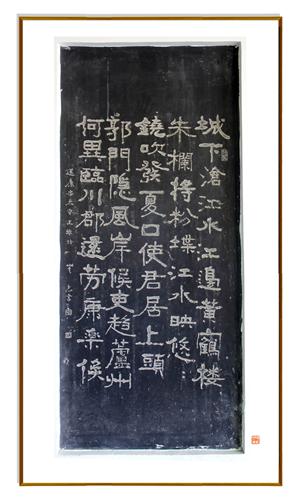 城下滄江水江邊黃鶴樓
朱欄將粉堞江水映悠
鐃吹發夏口使君居上頭
郭門隱風岸候吏趨蘆州
何異臨川郡還勞康樂侯
送康太守王維詩